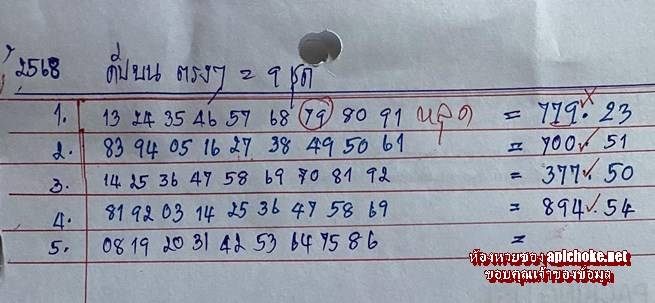 2568 ดับบน ตรงๆ = 9 ชุด
1. 13 24 35 46 57 68 79 80 91 หลุด = 779. 23
2. 83 94 05 16 27 38 49 50 61 = 700. 51
3. 14 25 36 47 58 69 70 81 92 = 377. 50
4. 81 92 03 14 25 36 47 58 69 = 894. 54
5. 08 19 20 31 42 53 64 75 86 =
ห้องหวยซอง apichoke.net
ขอบคุณเจ้าของข้อมูล